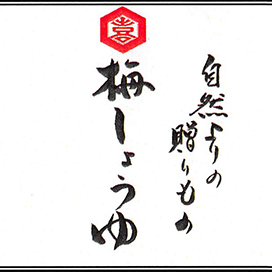 自然よりの
贈りもの
梅しょうゆ